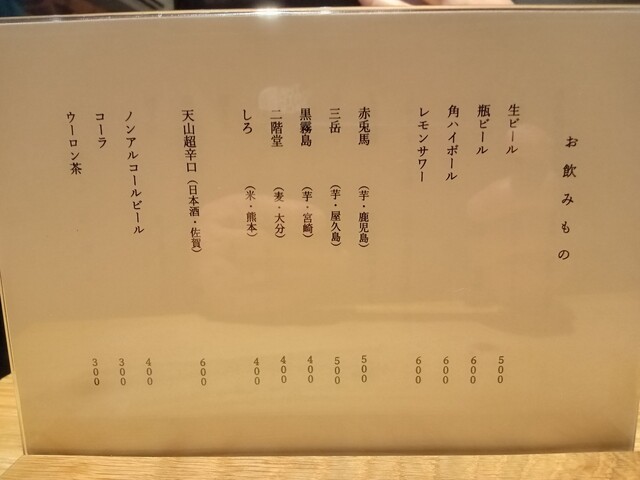 お飲みもの
生ビール 500
瓶ビール 600
角ハイボール 600
レモンサワー 600
赤兎馬 (芋・鹿児島) 500
三岳 (芋・屋久島) 500
黒霧島 (芋・宮崎) 400
二階堂 (麦・大分) 400
しろ (米・熊本) 400
天山超辛口 (日本酒・佐賀) 600
ノンアルコールビール 400
コーラ 300
ウーロン茶 300